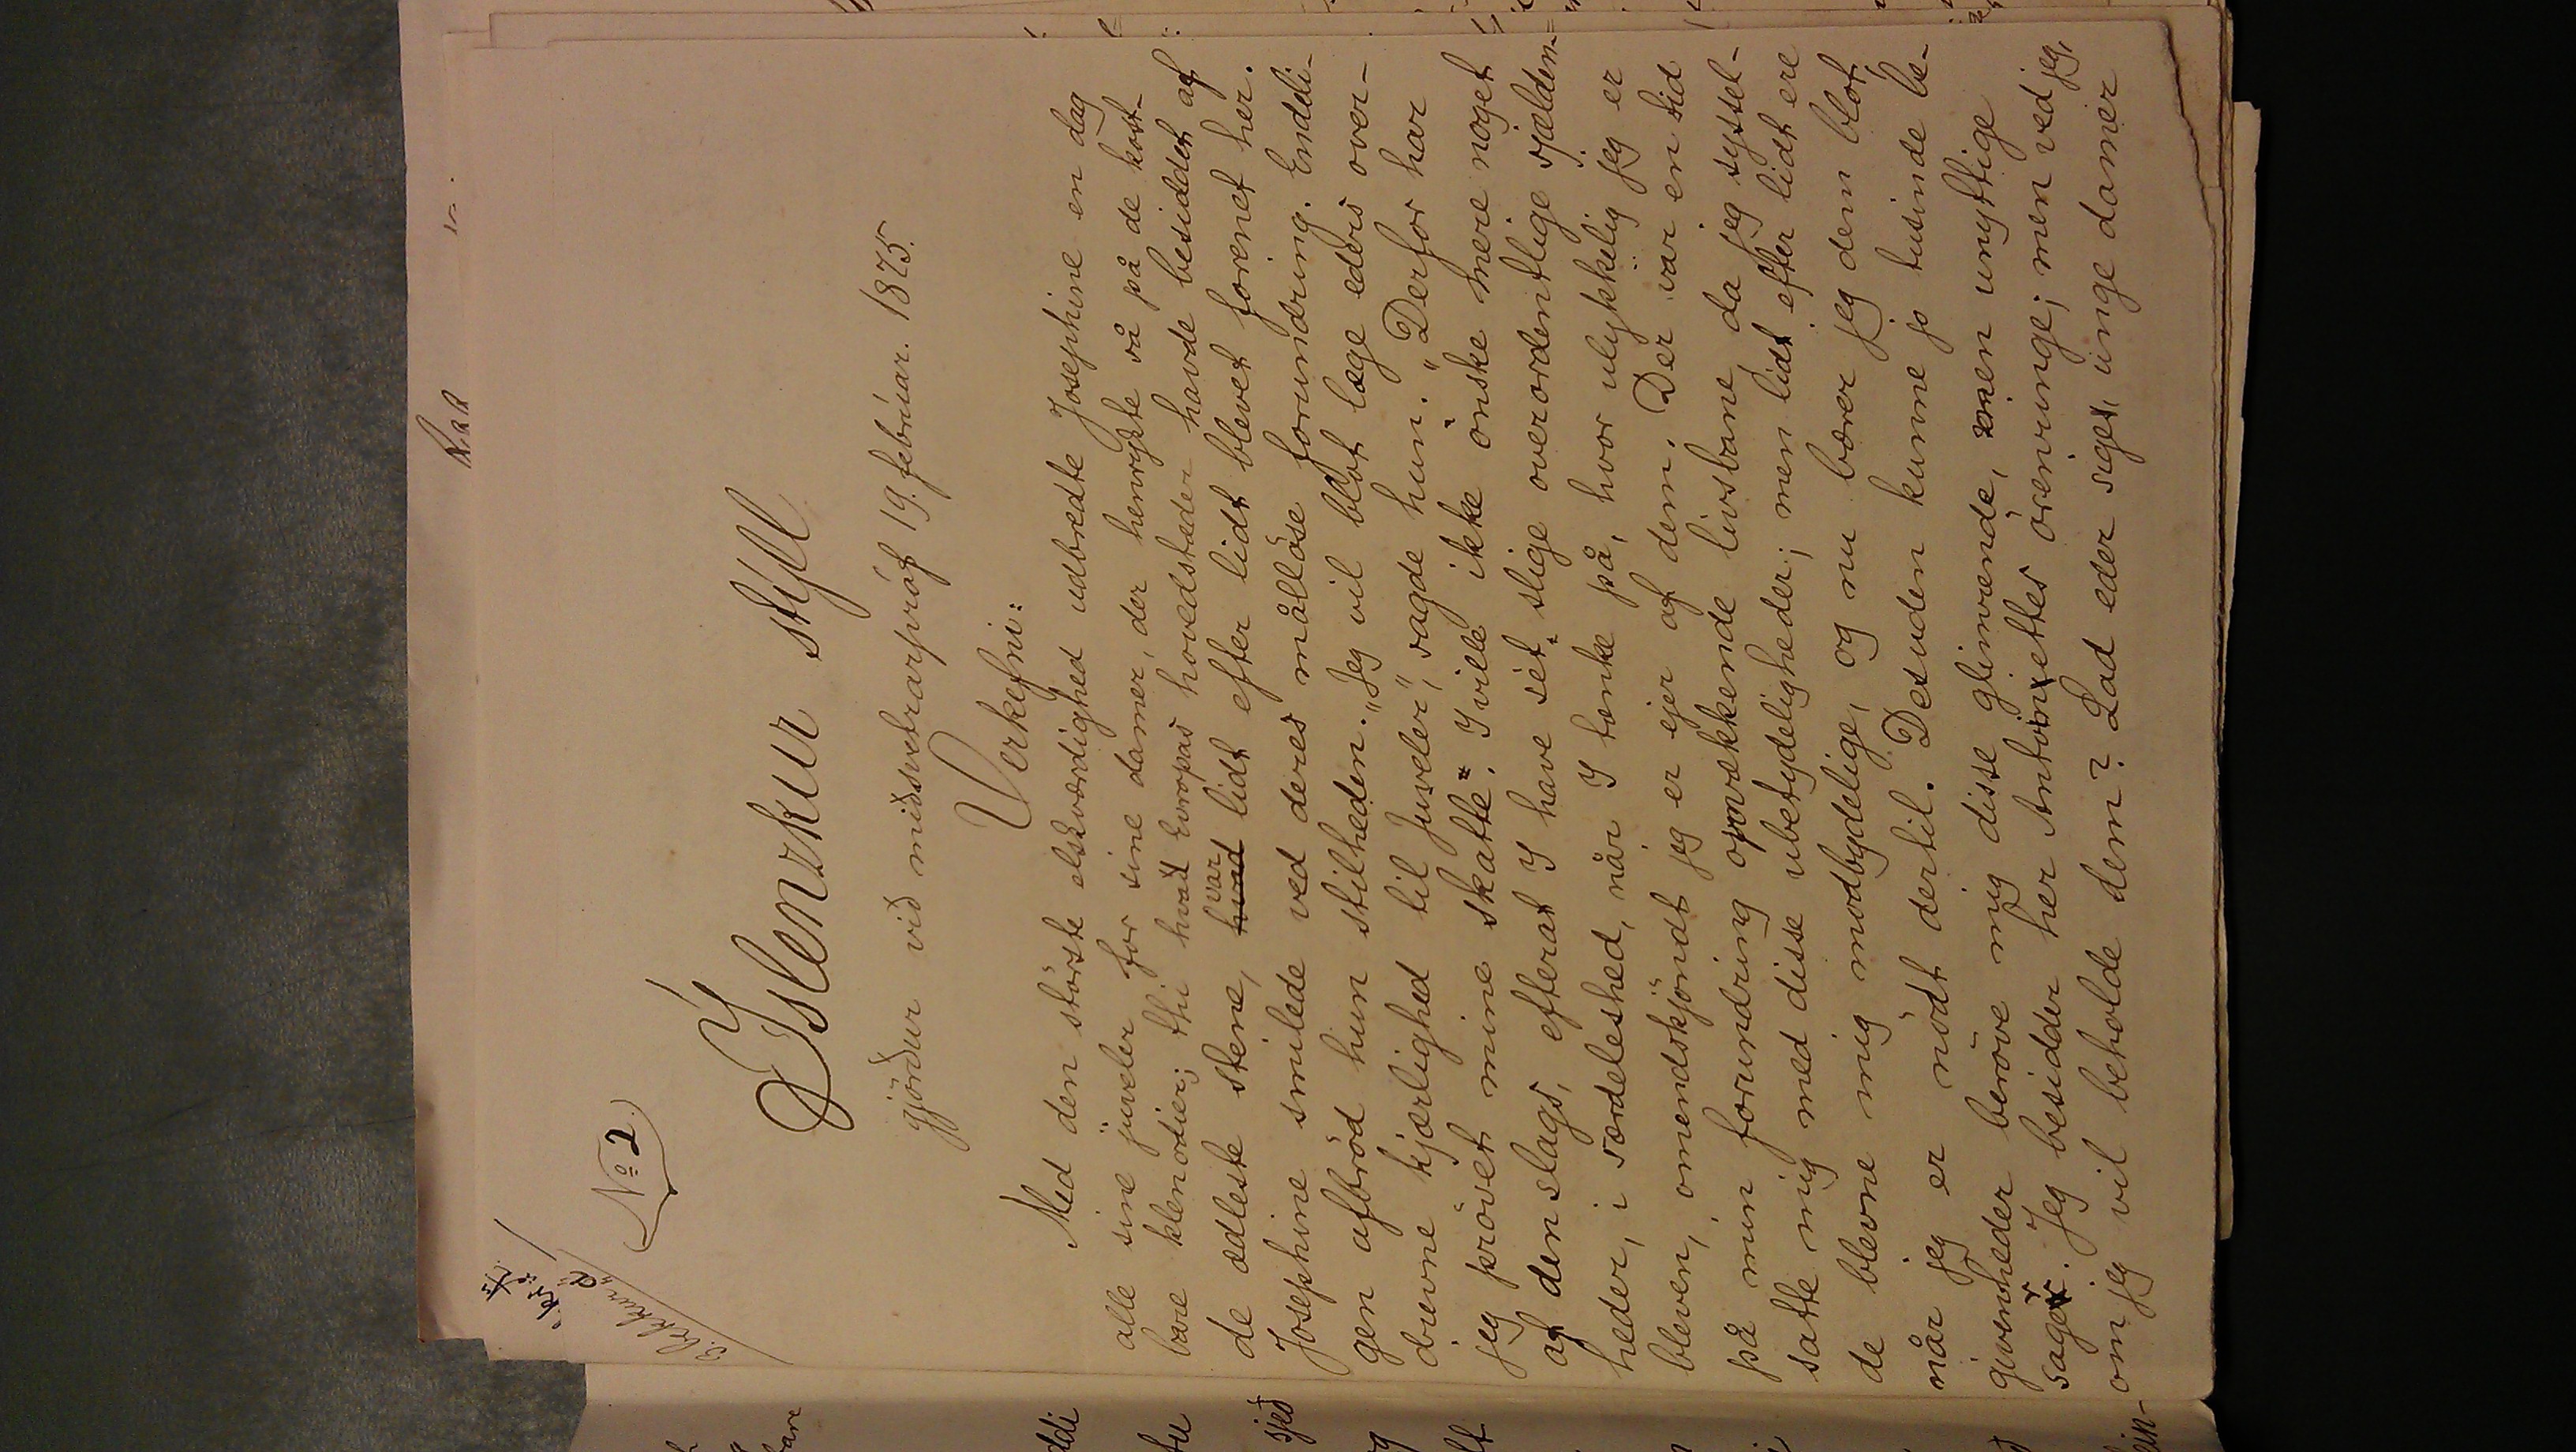 R.a.R
3. bekkur a
No 2.
Íslenzkur stýll
gjörður við miðsvetrarpróf 19. febrúar. 1875.
Verkefni:
Med den störste elskværdighed udbredte Josephine en dag
alle sine juveler for sine damer, der henrykte så på de kost-
bare klenodier; thi hvad Evropas hovedstæder havde besiddet af
de ædleste stene, hvad var lidt efter lidt blevet forenet her.
Josephine smilede ved deres målløse forundring. Endeli-
gen afbröd hun stilheden. „Jeg vil blot læge eders over-
drevne kjærlighed til Juveler", sagde hun. „Derfor har
jeg prövet mine skatte". I ville ikke önske mere noget
af den slags, efterat I have sét slige overordentlige sjælden-
heder, i særdeleshed, når I tænke på, hvor ulykkelig jeg er
bleven, omendskjöndt jeg er ejer af dem. Der var en tid
på min forundring opvækkende livsbane, da jeg syssel-
satte mig med disse ubetydeligheder; men lidt efter lidt ere
de blevne mig modbydelige, og nu bærer jeg dem blot,
når jeg er nödt dertil. Desuden kunne jo tusinde be-
givenheder beröve mig disse glimrende, men unyttige
sager. Jeg besidder her Antoinettes öreringe; men ved jeg,
om jeg vil beholde dem? Lad eder siges, unge damer